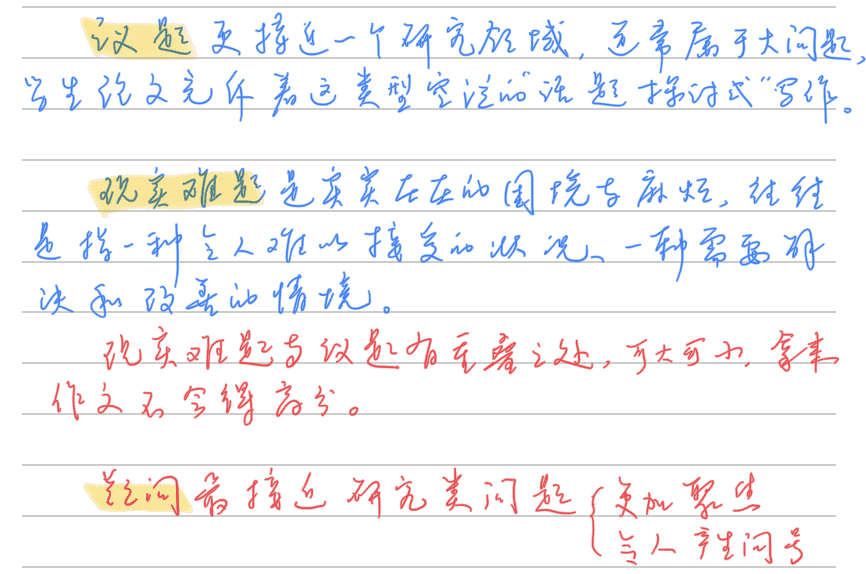 议题更接近一个研究领域，通常属于大问题，
学生论文充斥着这类型空泛的“话题探讨式”写作。
现实难题是实实在在的困境与麻烦，往往
是指一种令人难以接受的状况、一种需要解
决和改善的情境。
现实难题与议题有重叠之处，可大可小，拿来
作文不会得高分。
疑问最接近研究类问题{更加聚焦
令人产生问号